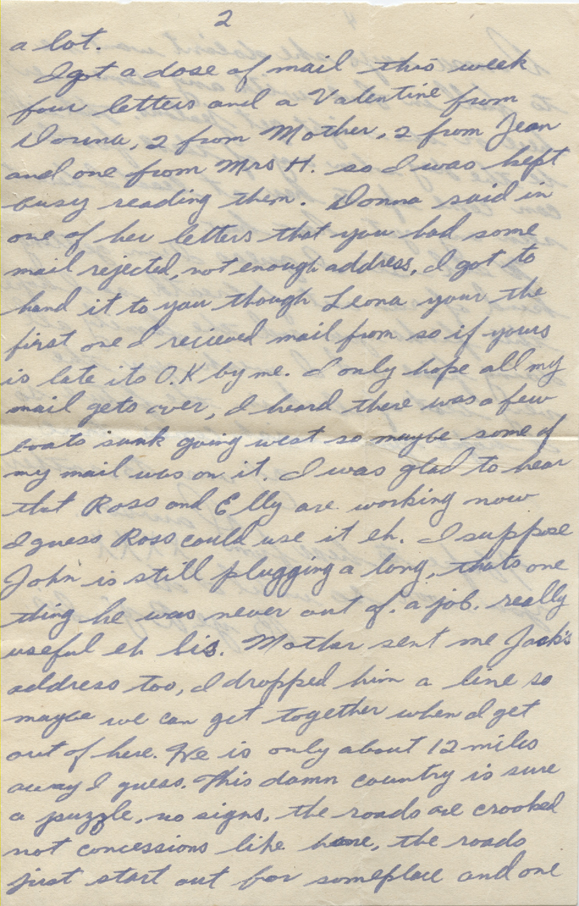 2
a lot.
I got a dose of mail this week
four letters and a Valentine from
Donna, 2 from Mother, 2 from Jean
and one from Mrs H. so I was kept
busy reading them. Donna said in
one of her letters that you had some
mail rejected, not enough address, I got to
hand it to you though Leona your the
first one I recieved mail from so if yours
is late its O.K by me. I only hope all my
mail gets over, I heard there was a few
boats sunk going west so maybe some of
my mail was on it. I was glad to hear
that Ross and Elly are working now
I guess Ross could use it eh. I suppose
John is still plugging a long, thats one
thing he was never out of. a job. really
useful eh sis. Mother sent me Jack's
address too, I dropped him a line so
maybe we can get together when I get
out of here. He is only about 12 miles
away I guess. This damn country is sure
a puzzle, no signs, the roads are crooked
not concessions like home, the roads
just start out for someplace and one